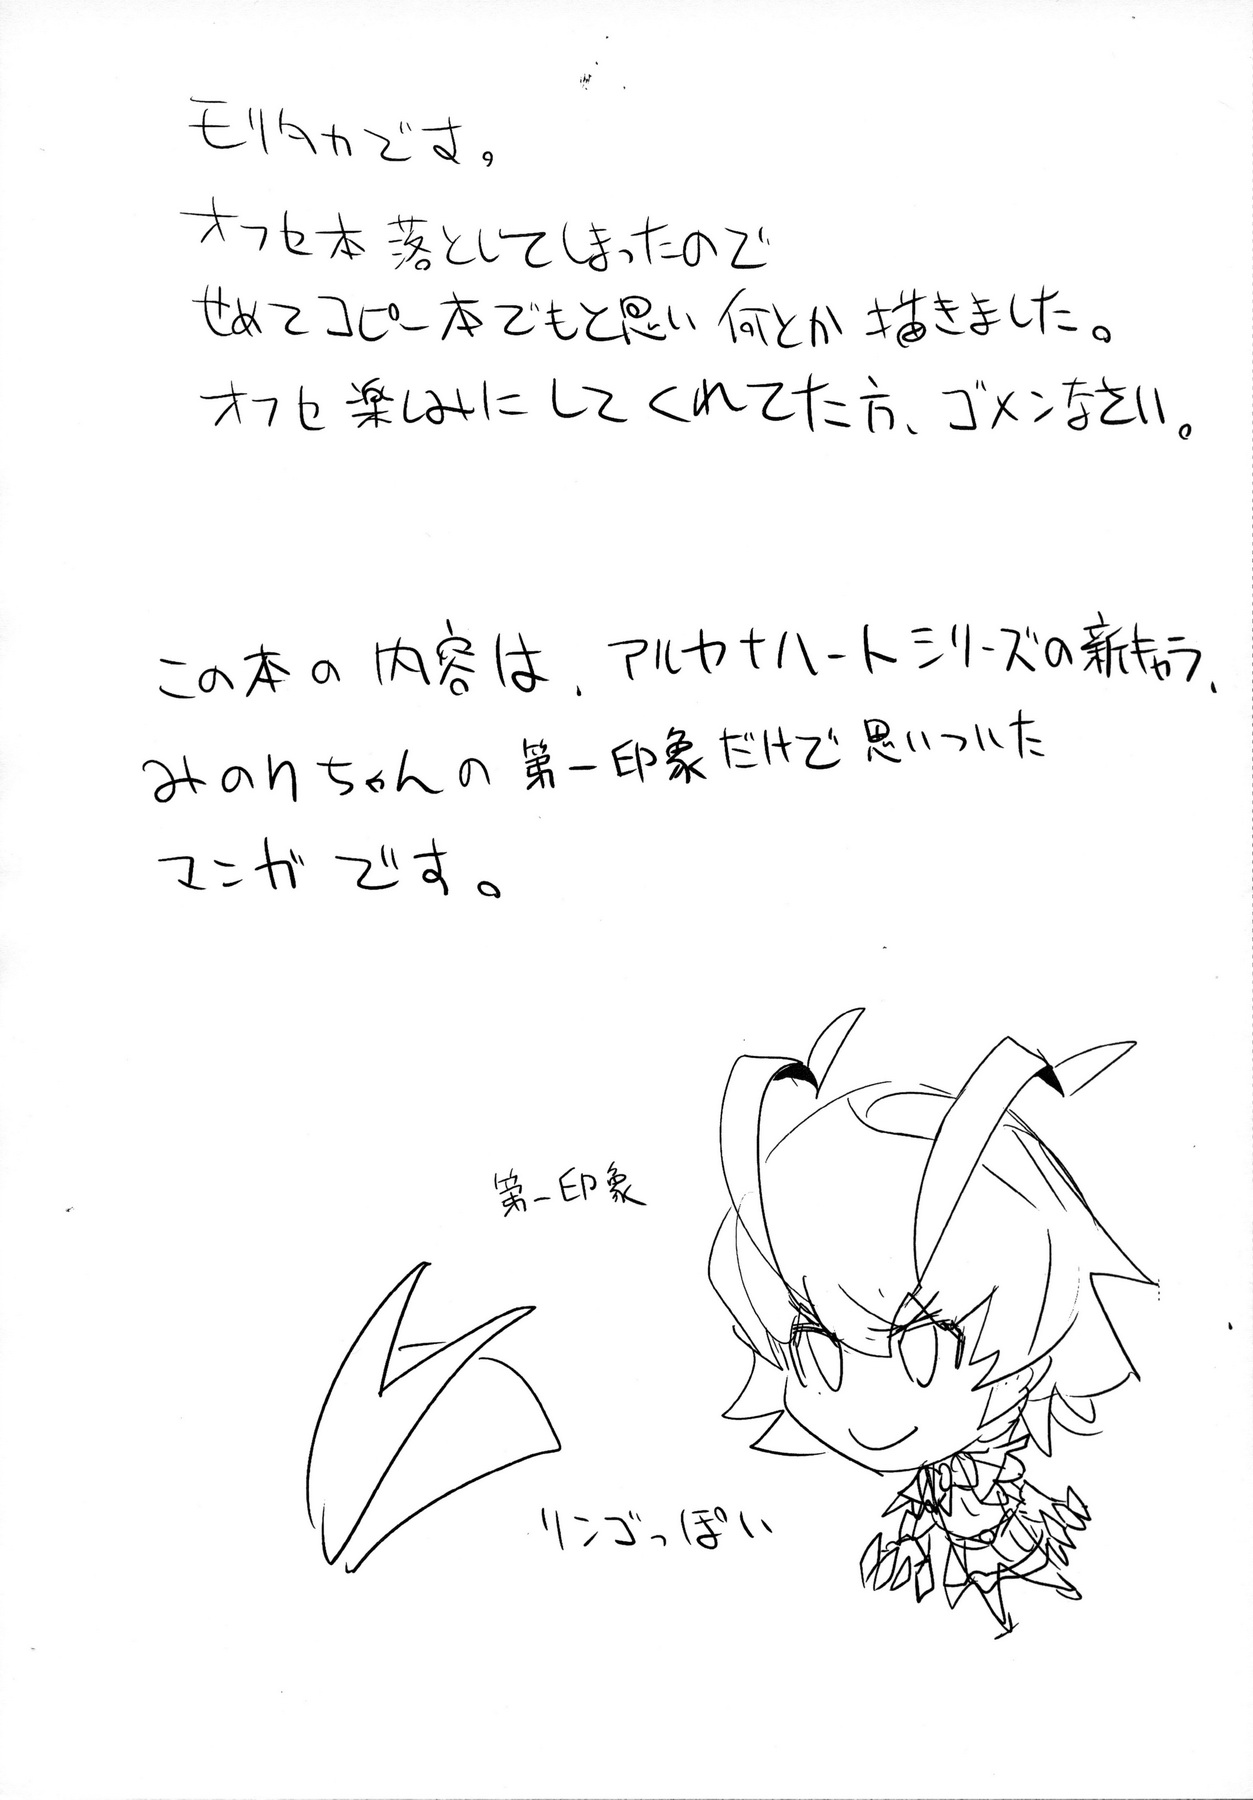 モリタカです。
オフセ本落としてしまったので
せめてコピー本でもと思い何とか描きました。
オフセ楽しみにしてくれてた方、ゴメンなさい。
この本の内容は、アルカナハートシリーズの新キャラ、
みのりちゃんの第一印象だけで思いついた
マンガです。
第一印象
リンゴっぽい